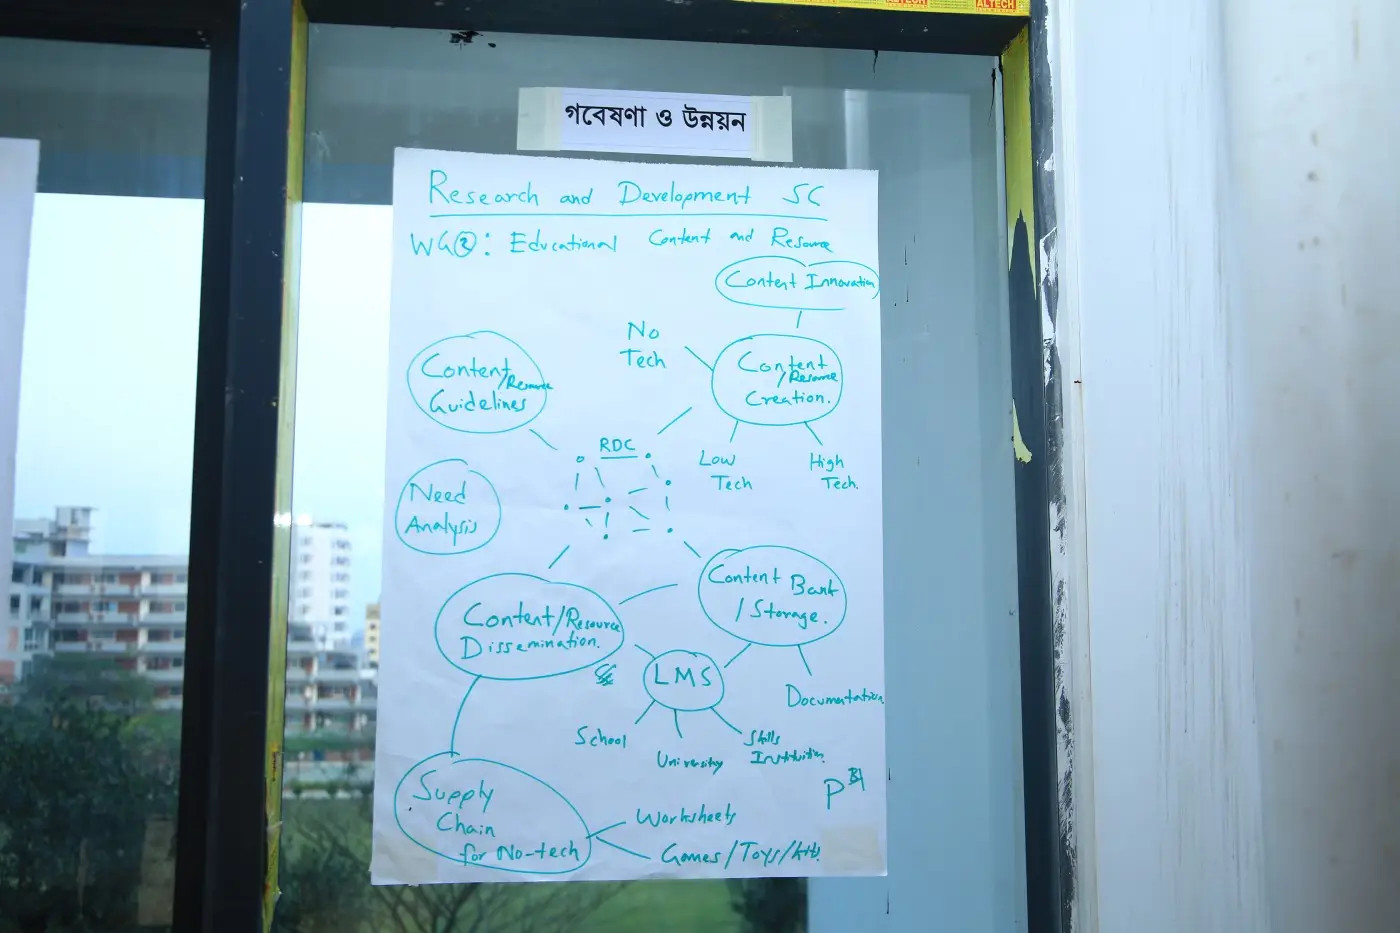 ALTECH
ALTECH
গবেষণা ও উন্নয়ন
Research and Development SC
WG②: Educational Content and Resource
Content Innovation
No
Tech
Content
/Resource
Creation.
Content
/Resource
Guidelines
RDC
Low
Tech
High
Tech.
Need
Analysis
Content Bank
/Storage.
Content/Resource
Dissemination.
LMS
Documentation
School
University
Skills
Institution
Supply
Chain
for No-tech
Worksheets
Games/Toys/